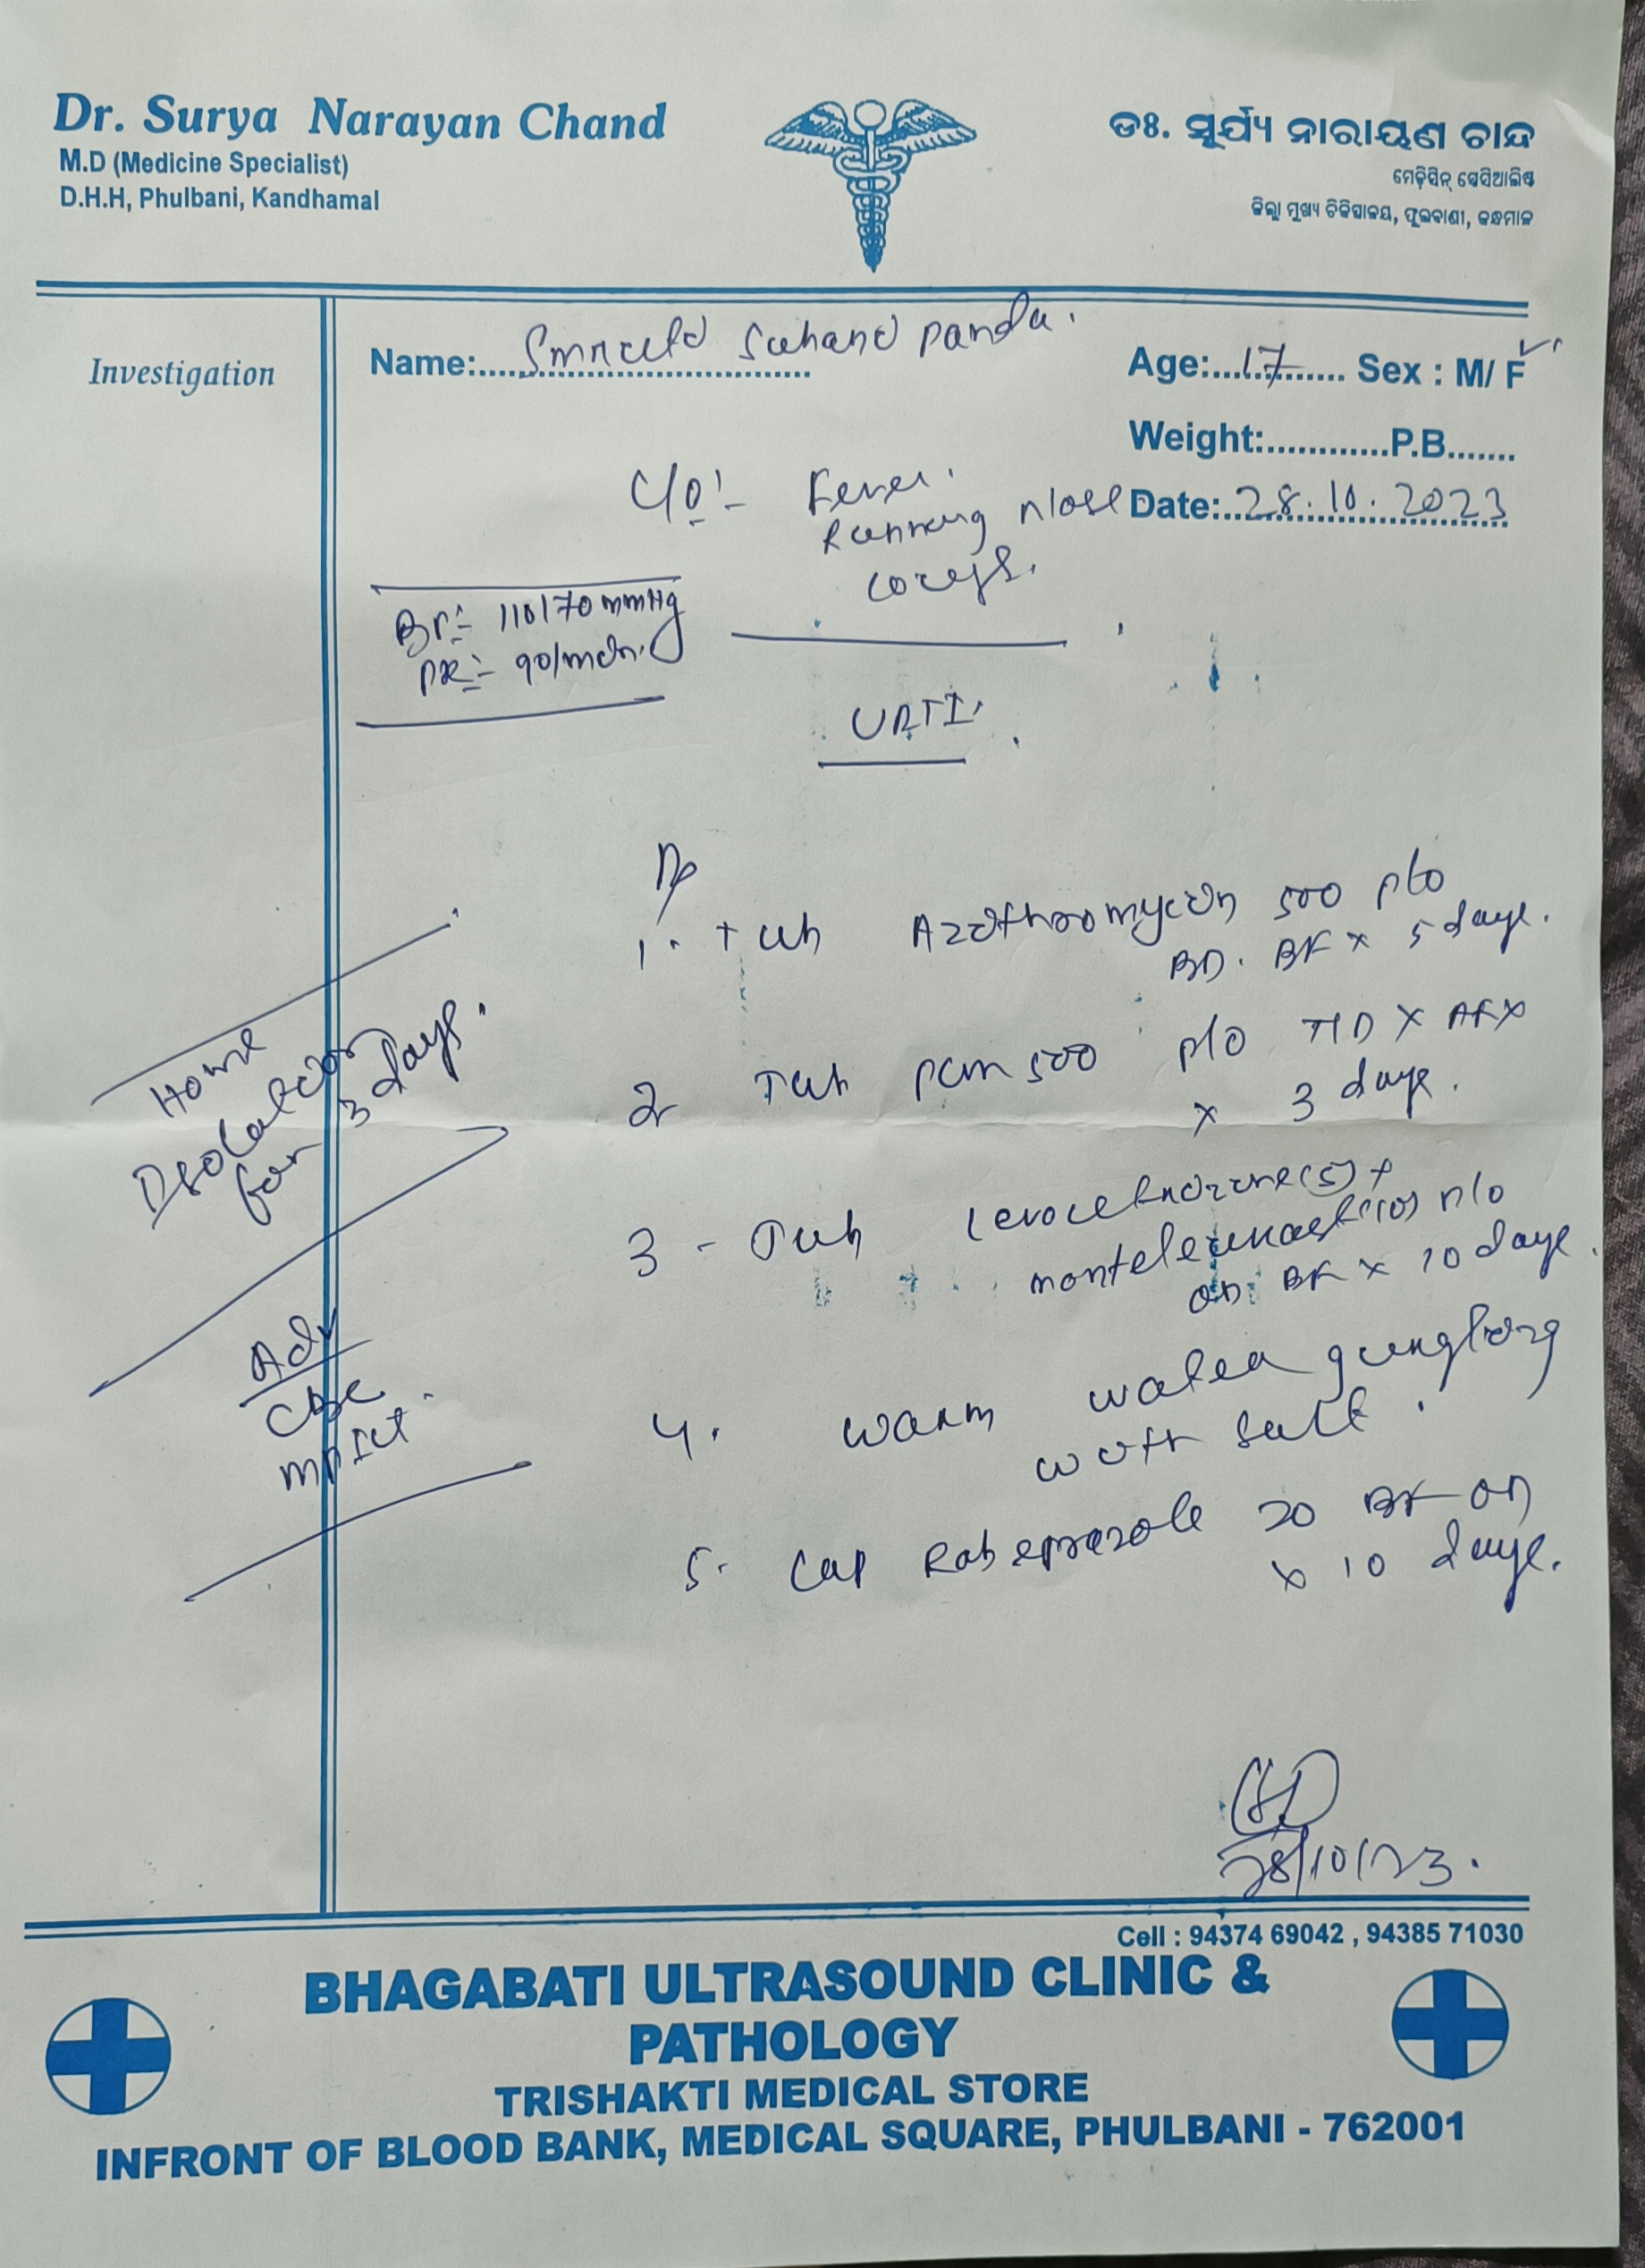 Dr. Surya Narayan Chand
M.D (Medicine Specialist)
D.H.H, Phulbani, Kandhamal
ଡଃ. ସୂର୍ଯ୍ୟ ନାରାୟଣ ଚାନ୍ଦ
ମେଡ଼ିସିନ୍ ସ୍ପେସିଆଲିଷ୍ଟ
ଜିଲ୍ଲା ମୁଖ୍ୟ ଚିକିତ୍ସାଳୟ, ଫୁଲବାଣୀ, କନ୍ଧମାଳ
Investigation
Name:..... panda.
Age:...17...... Sex : M/ F ✓
Weight:............P.B.......
Date:..28.10.2023
C/O:- Fever.
Running nose
cough.
BP:- 110/70 mmHg
PR:- 90/min.
URTI.
Rp
1. Tab Azithromycin 500 p/o
BD. BF x 5 days.
2 Tab pcm 500 p/o TID x AF x
x 3 days.
3 - Tab Levocetirizine(5) +
montelukast(10) p/o
OD BF x 10 days.
4. warm water gurgling
with salt.
5. Cap Rabeprazole 20 BF OD
x 10 days.
Home
Isolation
for 3 days.
Adv
CBC
MPICT
28/10/23.
Cell : 94374 69042 , 94385 71030
BHAGABATI ULTRASOUND CLINIC &
PATHOLOGY
TRISHAKTI MEDICAL STORE
INFRONT OF BLOOD BANK, MEDICAL SQUARE, PHULBANI - 762001